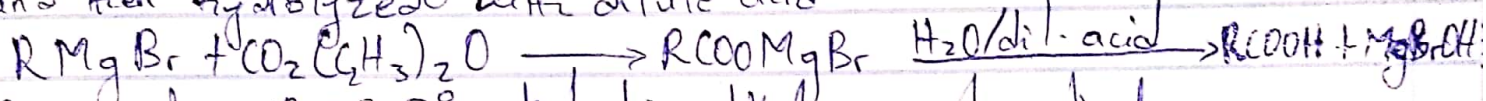 and then hydrolyzed with dilute acid
RMgBr + CO₂ (C₂H₃)₂O ⟶ RCOOMgBr H₂O/dil. acid ⟶ RCOOH + MgBrOH